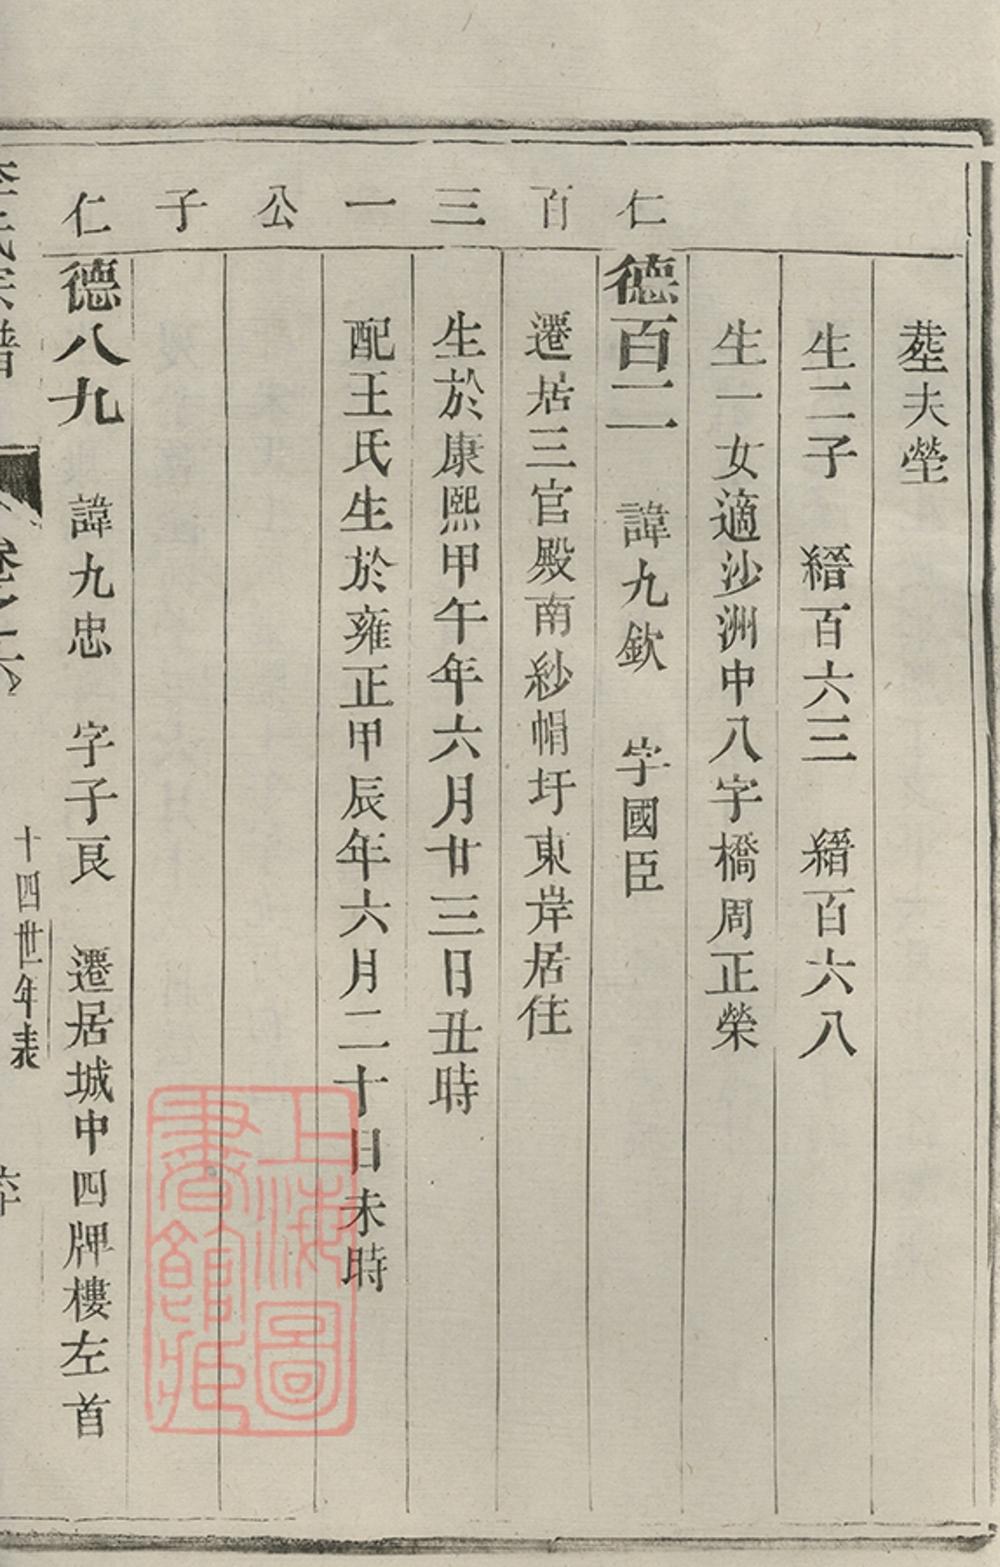 葬夫塋
生二子　縉百六三　縉百六八
生一女適沙洲中八字橋周正榮
仁
德百二　諱九欽　字國臣
百
遷居三官殿南紗帽圩東岸居住
三
生於康熙甲午年六月廿三日丑時
一
配王氏生於雍正甲辰年六月二十日未時
公
子
仁
德八九　諱九忠　字子艮　遷居城中四牌樓左首
李氏宗譜
卷之六
十四世年表
上海圖
書館藏